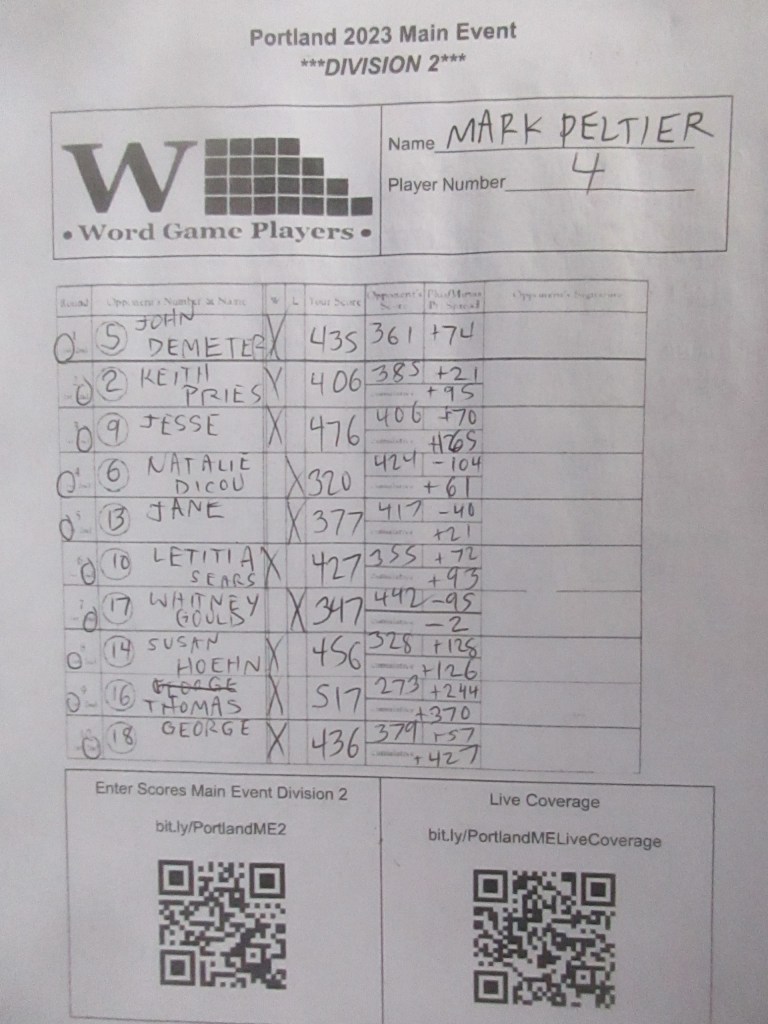 Portland 2023 Main Event
***DIVISION 2***
W
• Word Game Players •
Name MARK PELTIER
Player Number 4
Round Opponent's Number & Name W L Your Score Opponent's Score Plus/Minus Pt. Spread Opponent's Signature
5 JOHN DEMETER X 435 361 +74
2 KEITH PRIES X 406 385 +21
+95
9 JESSE X 476 406 +70
+165
6 NATALIE DICOU X 320 424 -104
+61
13 JANE X 377 417 -40
+21
10 LETITIA SEARS X 427 355 +72
+93
17 WHITNEY GOULD X 347 442 -95
-2
14 SUSAN HOEHN X 456 328 +128
+126
16 GEORGE THOMAS X 517 273 +244
+370
18 GEORGE X 436 379 +57
+427
Enter Scores Main Event Division 2
bit.ly/PortlandME2
Live Coverage
bit.ly/PortlandMELiveCoverage